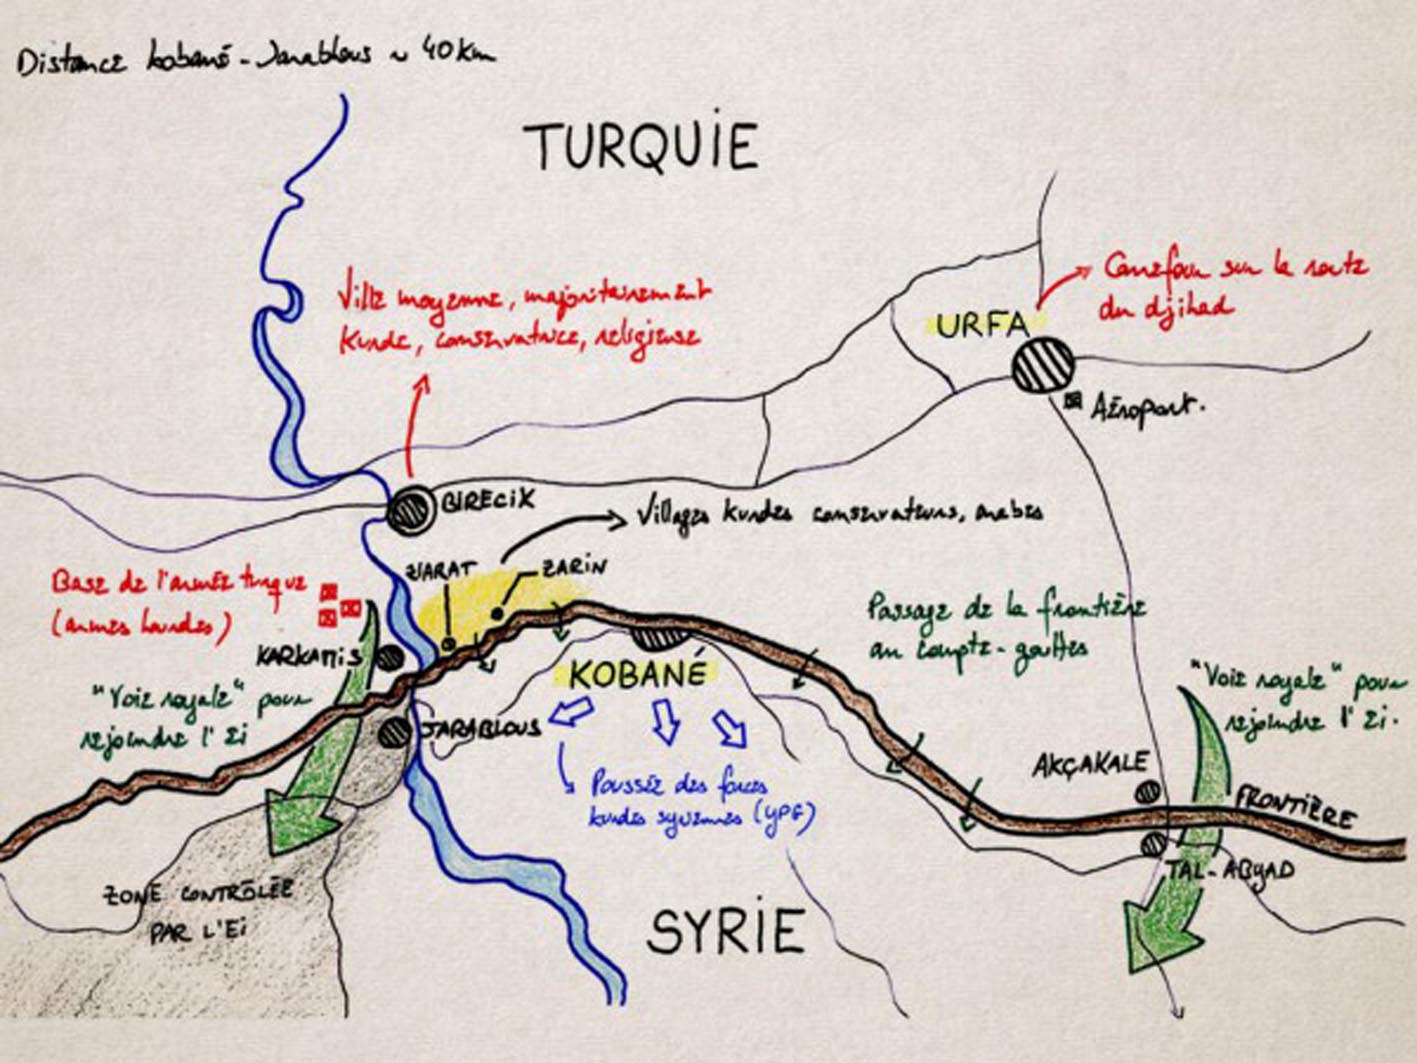 Distance kobané - Jarablous ~ 40 Km
TURQUIE
Ville moyenne, majoritairement
Kurde, conservatrice, religieuse
URFA
Carrefour sur la route
du djihad
Aéroport.
BIRECIK
Villages kurdes conservateurs, arabes
ZIARAT
ZARIN
Base de l'armée turque
(armes lourdes)
KARKAMIS
"Voie royale" pour
rejoindre l'Ei
JARABLOUS
KOBANÉ
Passage de la frontière
au compte-gouttes
"Voie royale" pour
rejoindre l'Ei.
Poussée des forces
kurdes syriennes (YPG)
AKÇAKALE
FRONTIÈRE
TAL-ABYAD
ZONE CONTRÔLÉE
PAR L'Ei
SYRIE